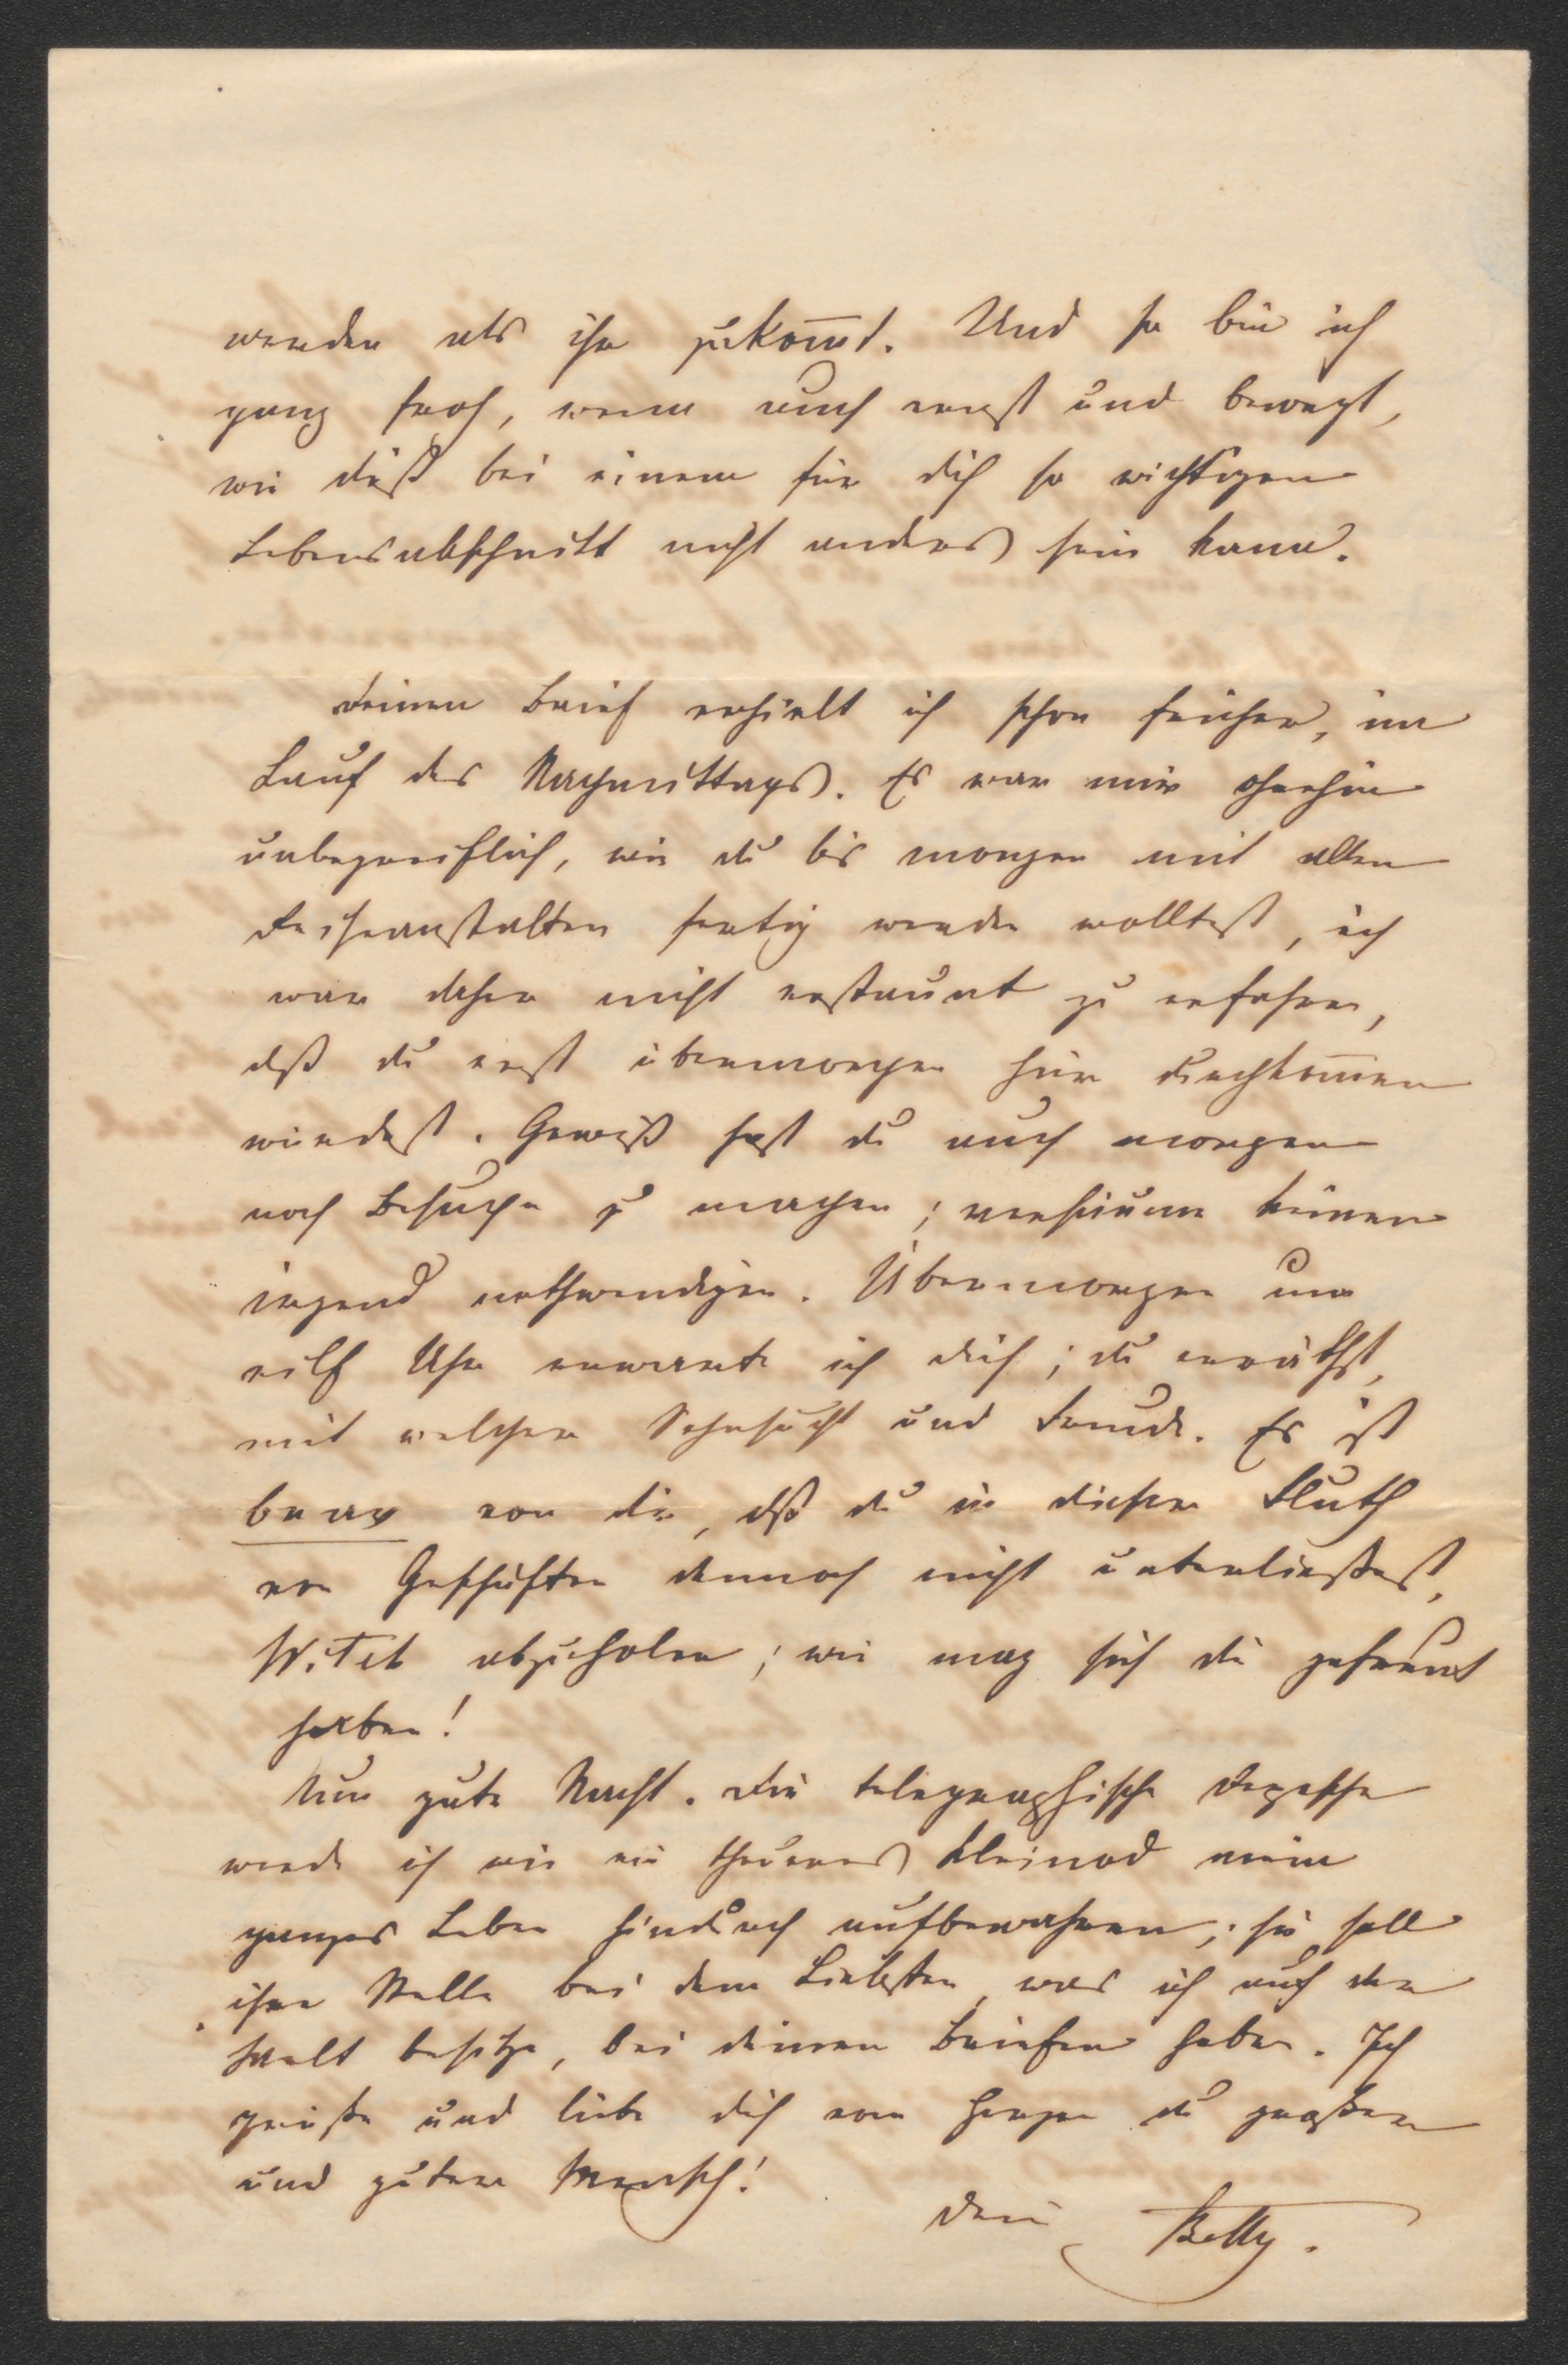 werden als ihr zukom̅t. Und so bin ich
ganz froh, wenn auch ernst und bewegt,
wie dieß bei einem für dich so wichtigen
Lebensabschnitt nicht anders sein kann.
Deinen Brief erhielt ich schon früher, im
Lauf des Nachmittags. Es war mir ohnehin
unbegreiflich, wie du bis morgen mit allen
Reiseanstalten fertig werden wolltest, ich
war daher nicht erstaunt zu erfahren,
daß du erst übermorgen hier durchkom̅en
würdest. Gewiß hast du auch morgen
noch Besuche zu machen; versäume keinen
irgend nothwendigen. Übermorgen um
eilf Uhr erwarte ich dich; du erräthst,
mit welcher Sehnsucht und Freude. Es ist
brav von dir, daß du in dieser Fluth
von Geschäften dennoch nicht unterließest,
abzuholen; wie mag sich die gefreut
haben!
Nun gute Nacht. Die telegraphische Depesche
werde ich wie ein theueres Kleinod mein
ganzes Leben hindurch aufbewahren; sie soll
ihre Stelle bei dem Liebsten was ich auf der
Welt besitze, bei deinen Briefen haben. Ich
grüße und liebe dich von Herzen du großer
und guter Mensch!
Dein Betty.